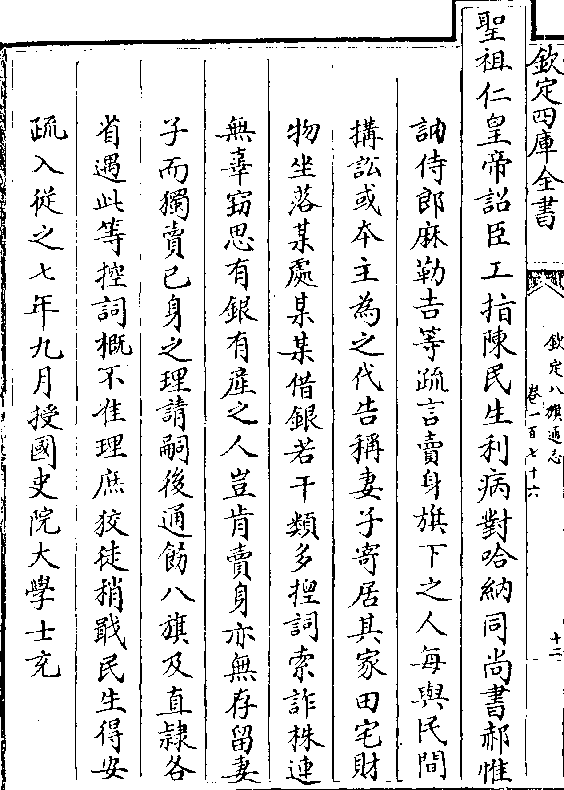 欽定四庫全書
欽定八旗通志
卷一百七十六
十二
聖祖仁皇帝詔臣工指陳民生利病對哈納同尚書郝惟
訥侍郎麻勒吉等疏言賣身旗下之人每與民間
搆訟或本主為之代告稱妻子寄居其家田宅財
物坐落某處某某借銀若干類多揑詞索詐株連
無辜竊思有銀有產之人豈肯賣身亦無存留妻
子而獨賣已身之理請嗣後通飭八旗及直隸各
省遇此等控詞概不准理庶狡徒稍戢民生得安
疏入從之七年九月授國史院大學士充